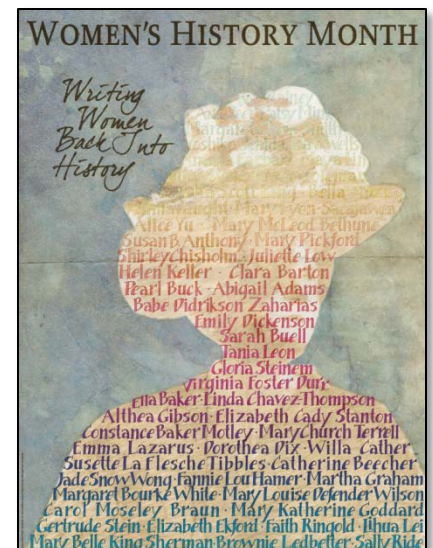 WOMEN'S HISTORY MONTH
Writing
Women
Back Into
History
Alice Yu · Mary McLeod Bethune
Susan B. Anthony · Mary Pickford
Shirley Chisholm · Juliette Low
Helen Keller · Clara Barton
Pearl Buck · Abigail Adams
Babe Didrikson Zaharias
Emily Dickenson
Sarah Buell
Tania Leon
Gloria Steinem
Virginia Foster Durr
Ella Baker · Linda Chavez-Thompson
Althea Gibson · Elizabeth Cady Stanton
Constance Baker Motley · Mary Church Terrell
Emma Lazarus · Dorothea Dix · Willa Cather
Susette La Flesche Tibbles · Catherine Beecher
Jade Snow Wong · Fannie Lou Hamer · Martha Graham
Margaret Bourke White · Mary Louise Defender Wilson
Carol Moseley Braun · Mary Katherine Goddard
Gertrude Stein · Elizabeth Ekford · Faith Ringold · Lihua Lei
Mary Belle King Sherman · Brownie Ledbetter · Sally Ride